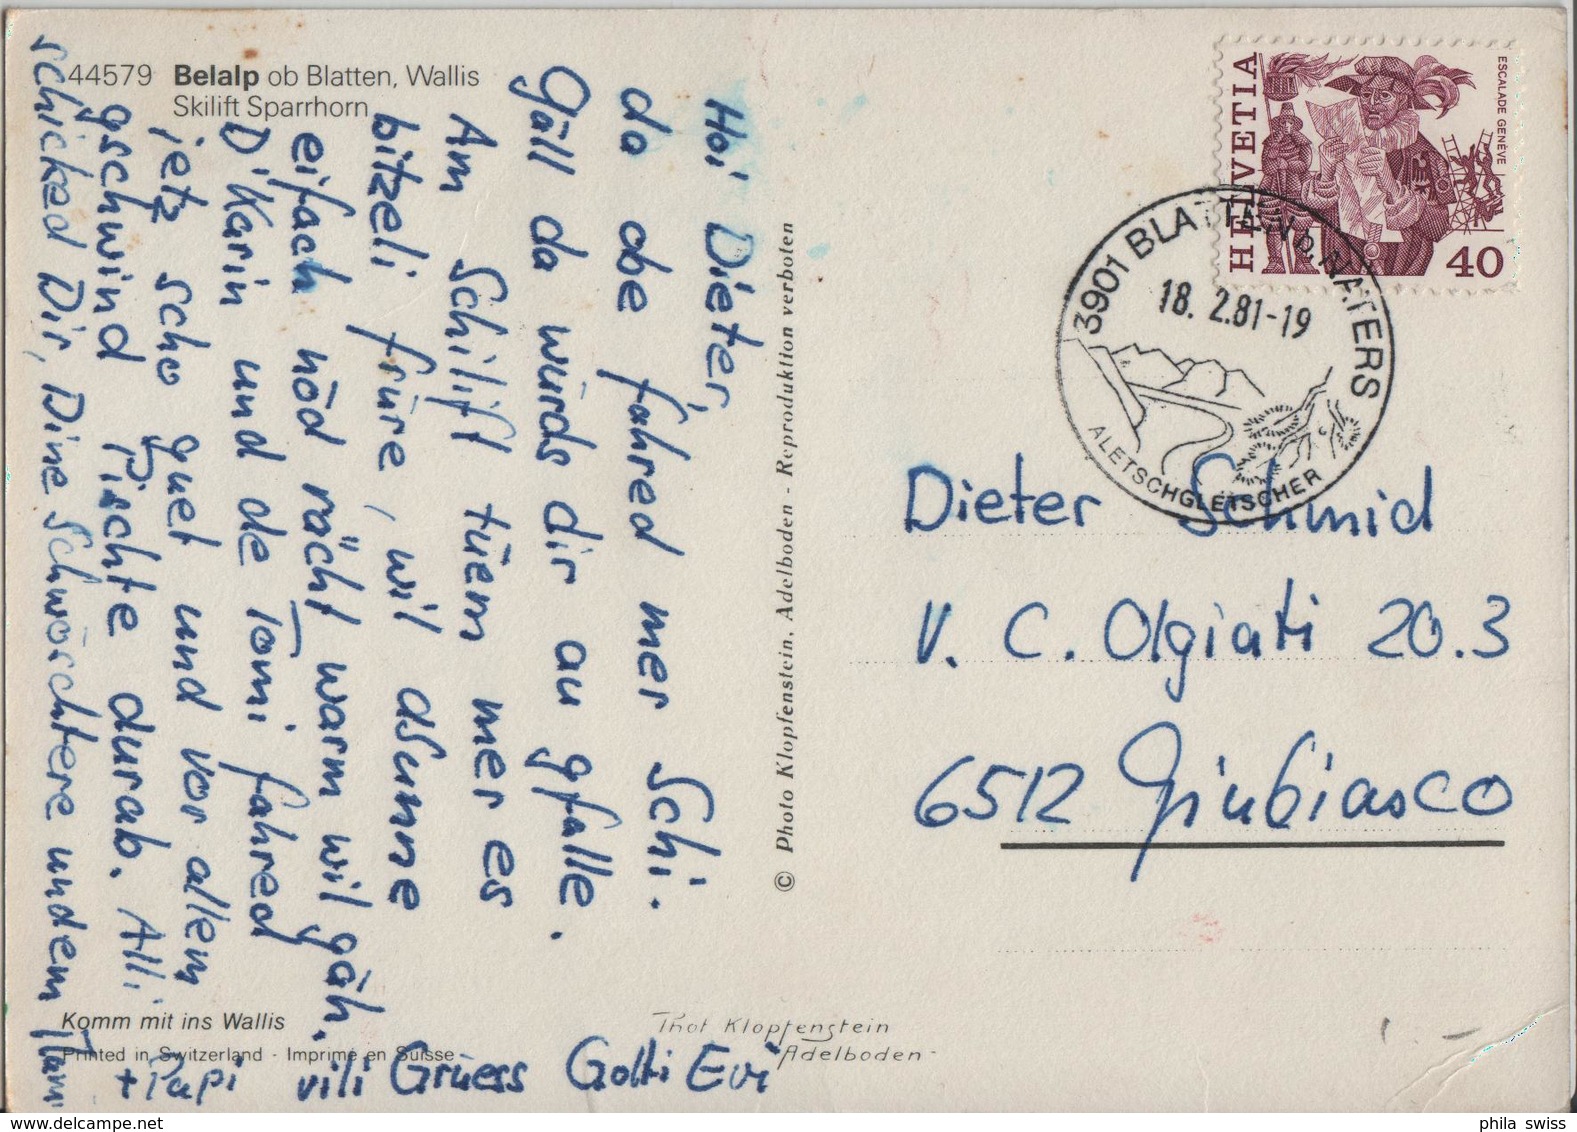 44579 Belalp ob Blatten, Wallis
Skilift Sparrhorn
Hoi Dieter,
da obe fahred mer Schi.
Gäll da würds dir au gfalle.
Am Schilift tüem mer es
bitzeli früre, wil dsunne
eifach nöd rächt warm wil gäh.
D'Karin und de Tomi fahred
jetz scho guet und vor allem
gschwind Pischte durab. Alli
schicked Dir, Dine Schwöschtere und em Mami
+ Papi vili Grüess Gotti Evi
Komm mit ins Wallis
Printed in Switzerland - Imprimé en Suisse
© Photo Klopfenstein, Adelboden - Reproduktion verboten
Phot Klopfenstein
Adelboden
HELVETIA
ESCALADE GENÈVE
40
3901 BLATTEN b. NATERS
18. 2.81-19
ALETSCHGLETSCHER
Dieter Schmid
V. C. Olgiati 20.3
6512 Giubiasco
phila swiss